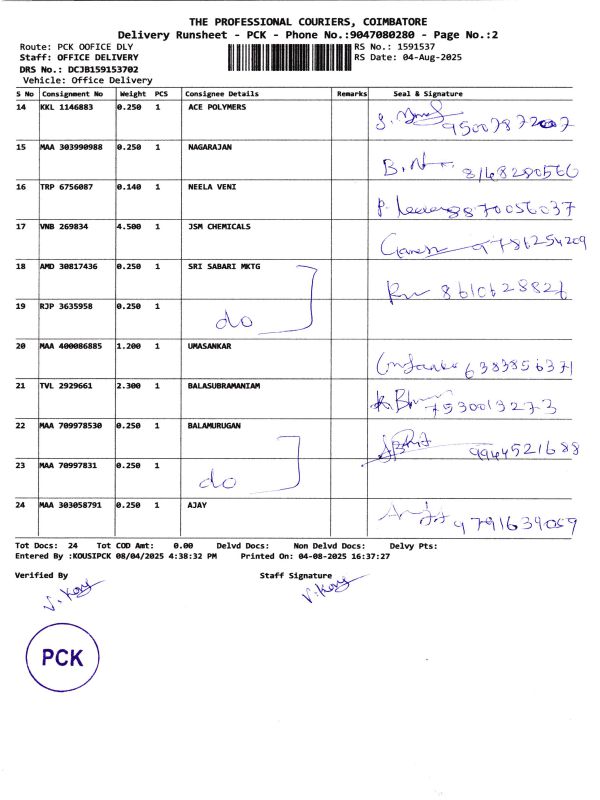 THE PROFESSIONAL COURIERS, COIMBATORE
Delivery Runsheet - PCK - Phone No.:9047080280 - Page No.:2
Route: PCK OOFICE DLY RS No.: 1591537
Staff: OFFICE DELIVERY RS Date: 04-Aug-2025
DRS No.: DCJB159153702
Vehicle: Office Delivery
S No Consignment No Weight PCS Consignee Details Remarks Seal & Signature
14 KKL 1146883 0.250 1 ACE POLYMERS
15 MAA 303990988 0.250 1 NAGARAJAN
8168280566
16 TRP 6756087 0.140 1 NEELA VENI
8870056037
17 VNB 269834 4.500 1 JSM CHEMICALS
9786254209
18 AMD 30817436 0.250 1 SRI SABARI MKTG
19 RJP 3635958 0.250 1
do
20 MAA 400086885 1.200 1 UMASANKAR
6383856371
21 TVL 2929661 2.300 1 BALASUBRAMANIAM
7530013273
22 MAA 709978530 0.250 1 BALAMURUGAN
9944521688
23 MAA 70997831 0.250 1
do
24 MAA 303058791 0.250 1 AJAY
9791639059
Tot Docs: 24 Tot COD Amt: 0.00 Delvd Docs: Non Delvd Docs: Delvy Pts:
Entered By :KOUSIPCK 08/04/2025 4:38:32 PM Printed On: 04-08-2025 16:37:27
Verified By Staff Signature
PCK